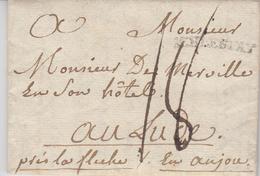 a Monsieur
Monsieur De Merville
En Son hôtel
au Lude.
près la fleche . En anjou.
18